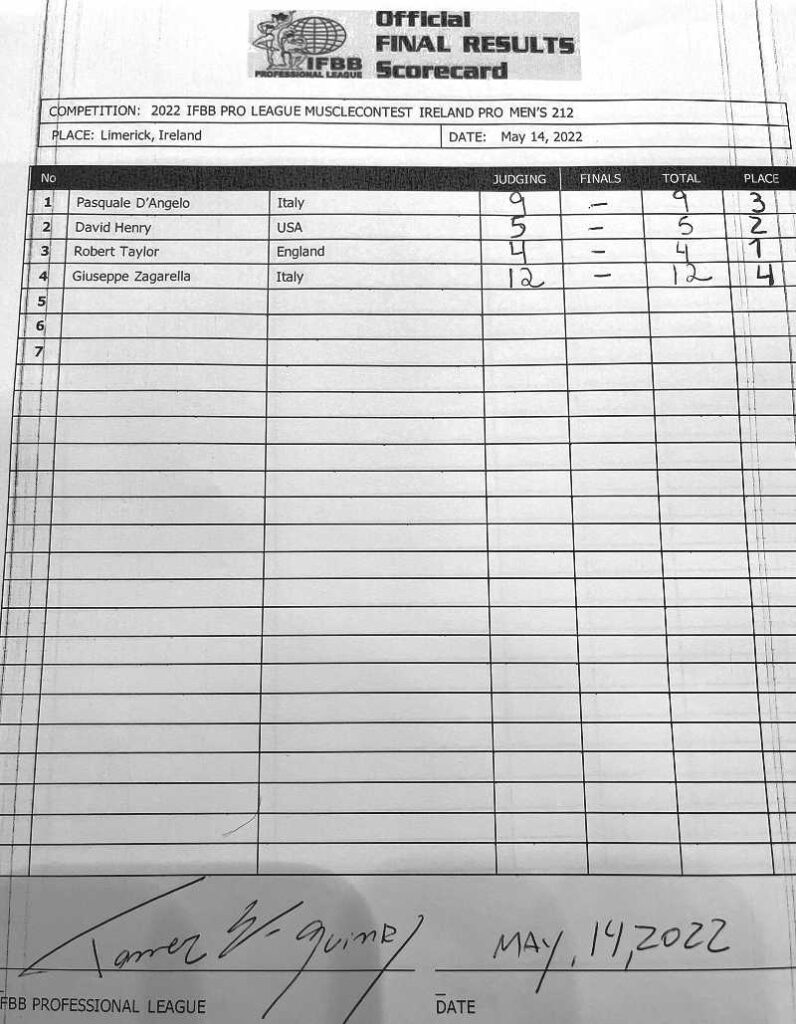 IFBB
PROFESSIONAL LEAGUE
Official
FINAL RESULTS
Scorecard
COMPETITION: 2022 IFBB PRO LEAGUE MUSCLECONTEST IRELAND PRO MEN'S 212
PLACE: Limerick, Ireland DATE: May 14, 2022
No JUDGING FINALS TOTAL PLACE
1 Pasquale D'Angelo Italy 9 – 9 3
2 David Henry USA 5 – 5 2
3 Robert Taylor England 4 – 4 1
4 Giuseppe Zagarella Italy 12 – 12 4
5
6
7
MAY, 14, 2022
IFBB PROFESSIONAL LEAGUE DATE